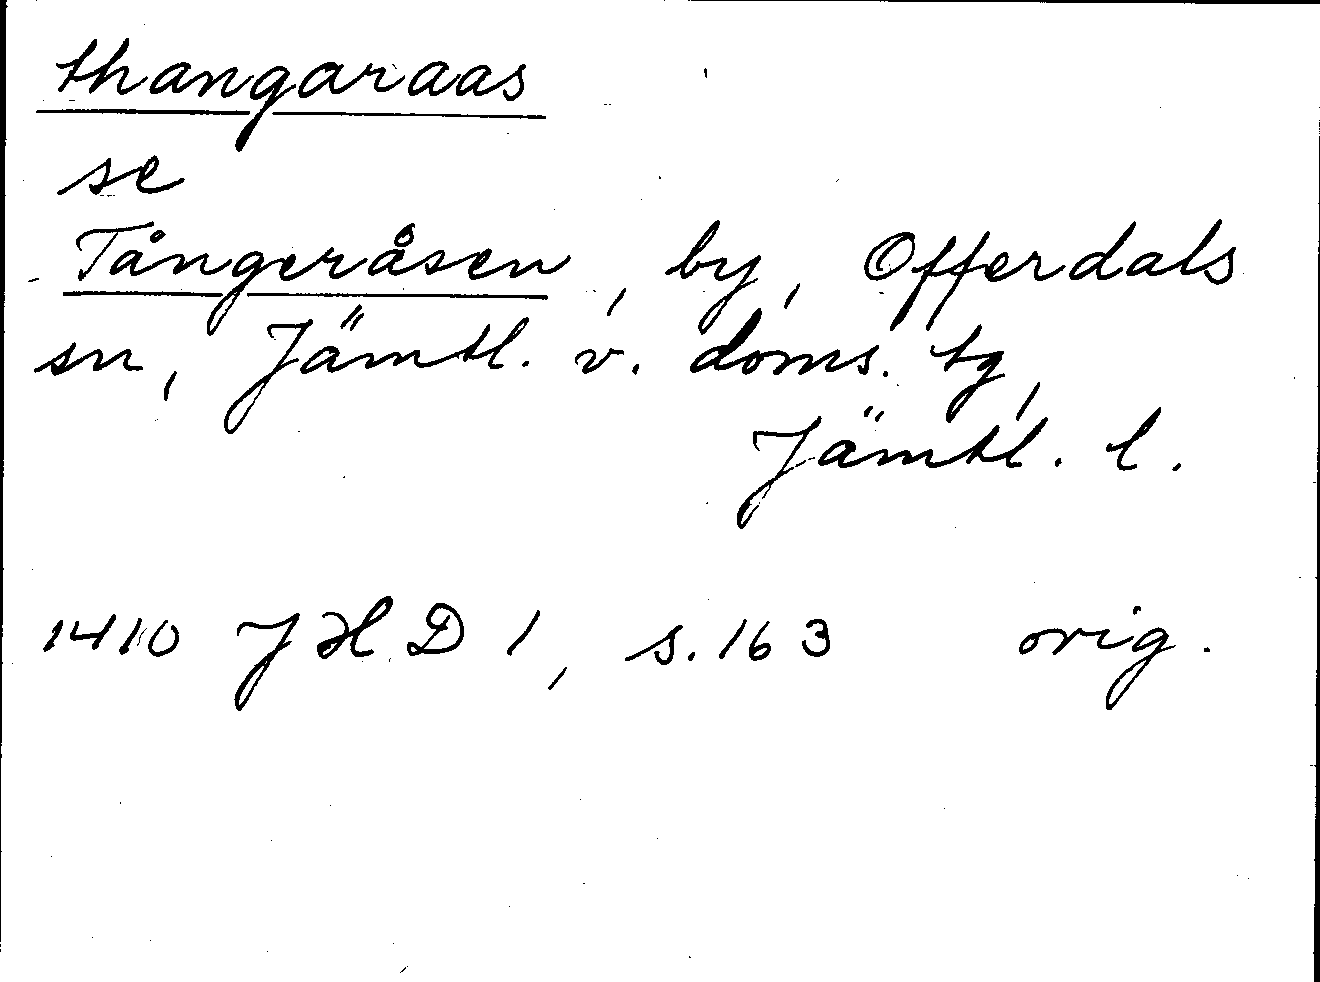 thangaraas
se
Tångeråsen, by, Offerdals
sn, Jämtl. v. doms. tg,
Jämtl. l.
1410 JHD 1, s. 163 orig.